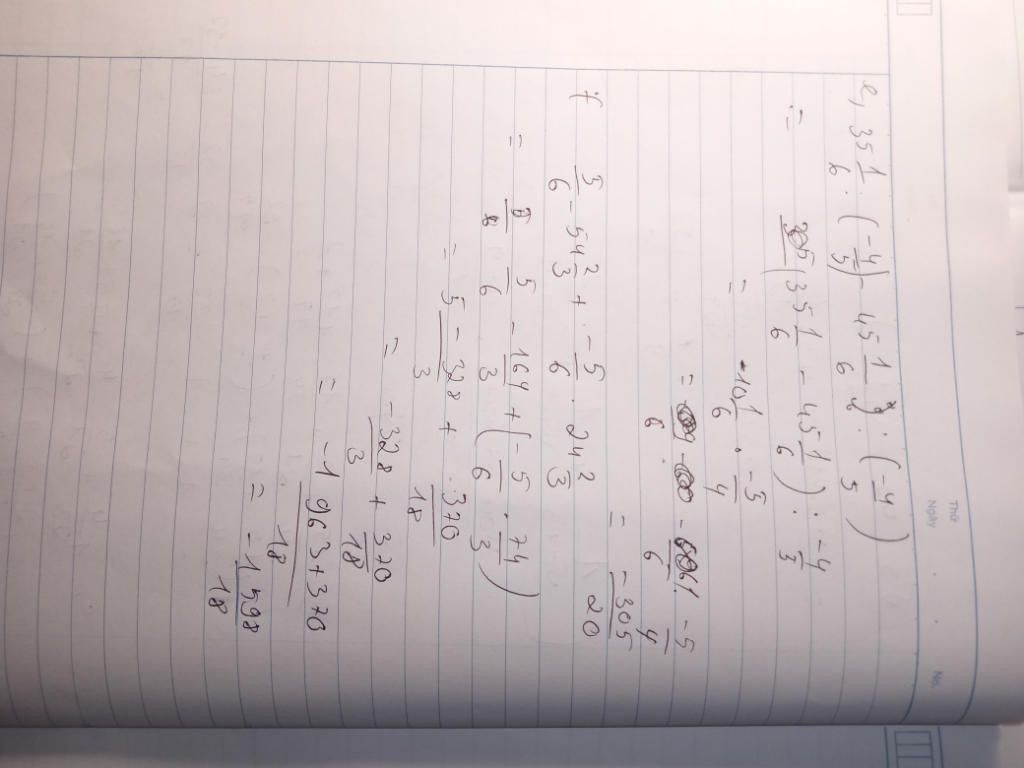 Thứ
Ngày
No.
e, 35 1/6 . (-4/5) - 45 1/6 : (-4/5)
= (35 1/6 - 45 1/6) : -4/5
= -10 1/6 . -5/4
= -61/6 . -5/4
= -305/20
f 5/6 - 54 2/3 + -5/6 . 24 2/3
= 5/6 - 164/3 + (-5/6 . 74/3)
= 5 - 328/3 + 370/18
= -328/3 + 370/18
= -1963 + 370/18
= -1598/18